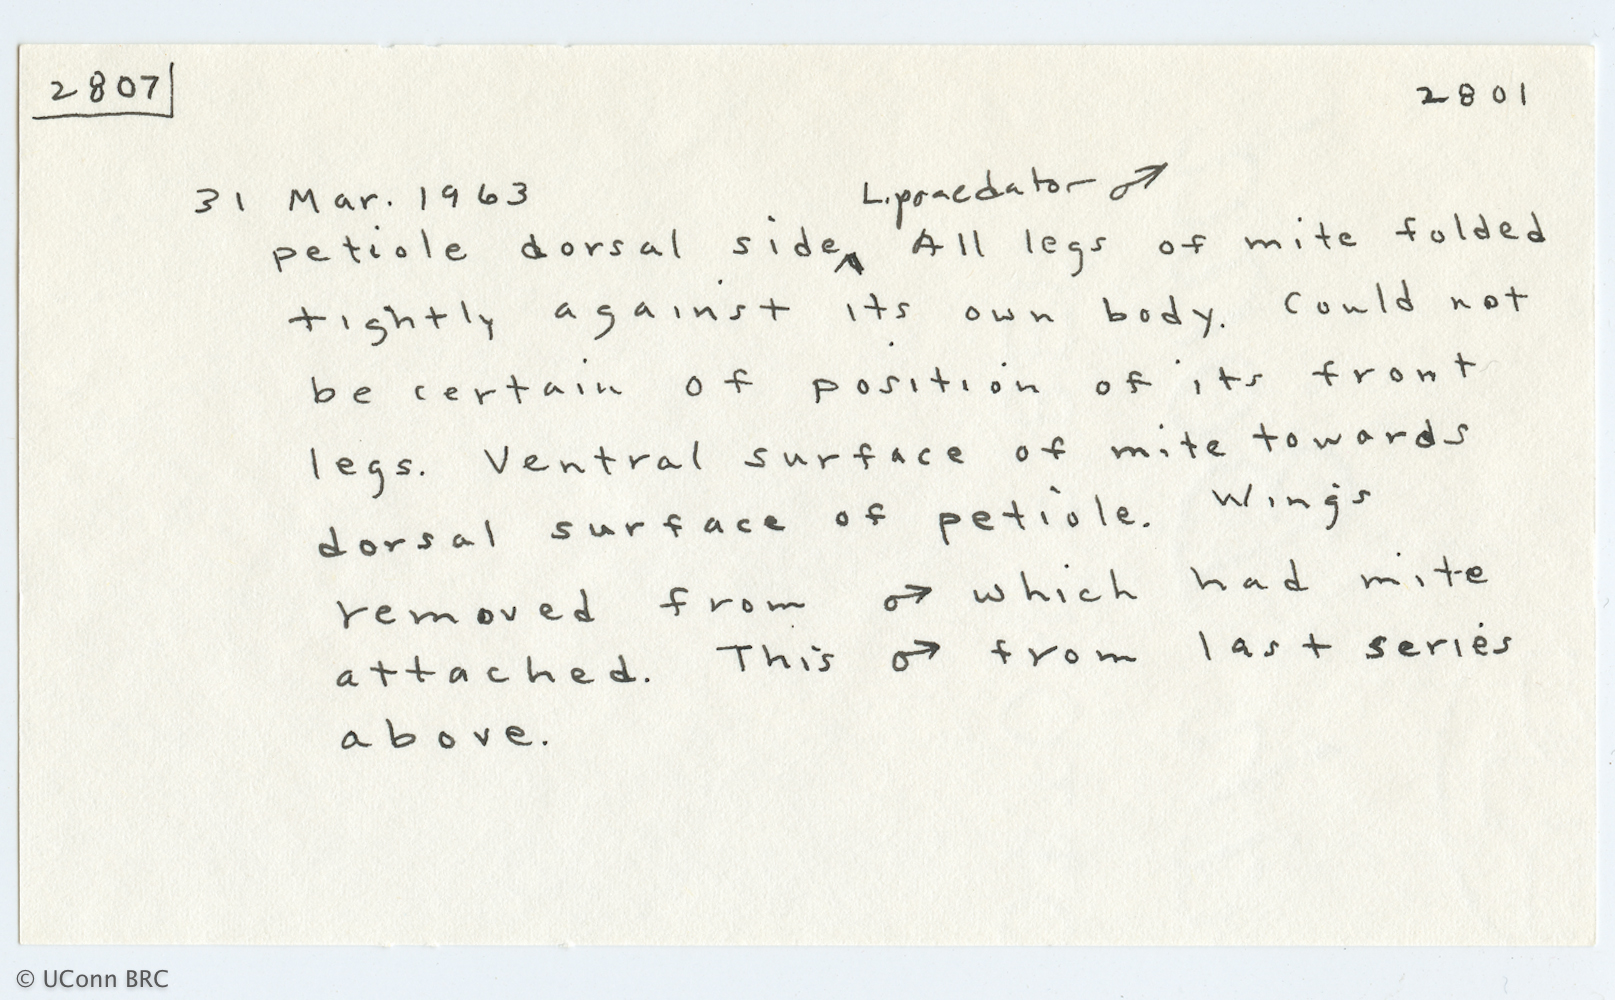 2807
2801
31 Mar. 1963
L. praedator ♂
petiole dorsal side ^ All legs of mite folded
tightly against its own body. Could not
be certain of position of its front
legs. Ventral surface of mite towards
dorsal surface of petiole. Wings
removed from ♂ which had mite
attached. This ♂ from last series
above.
© UConn BRC